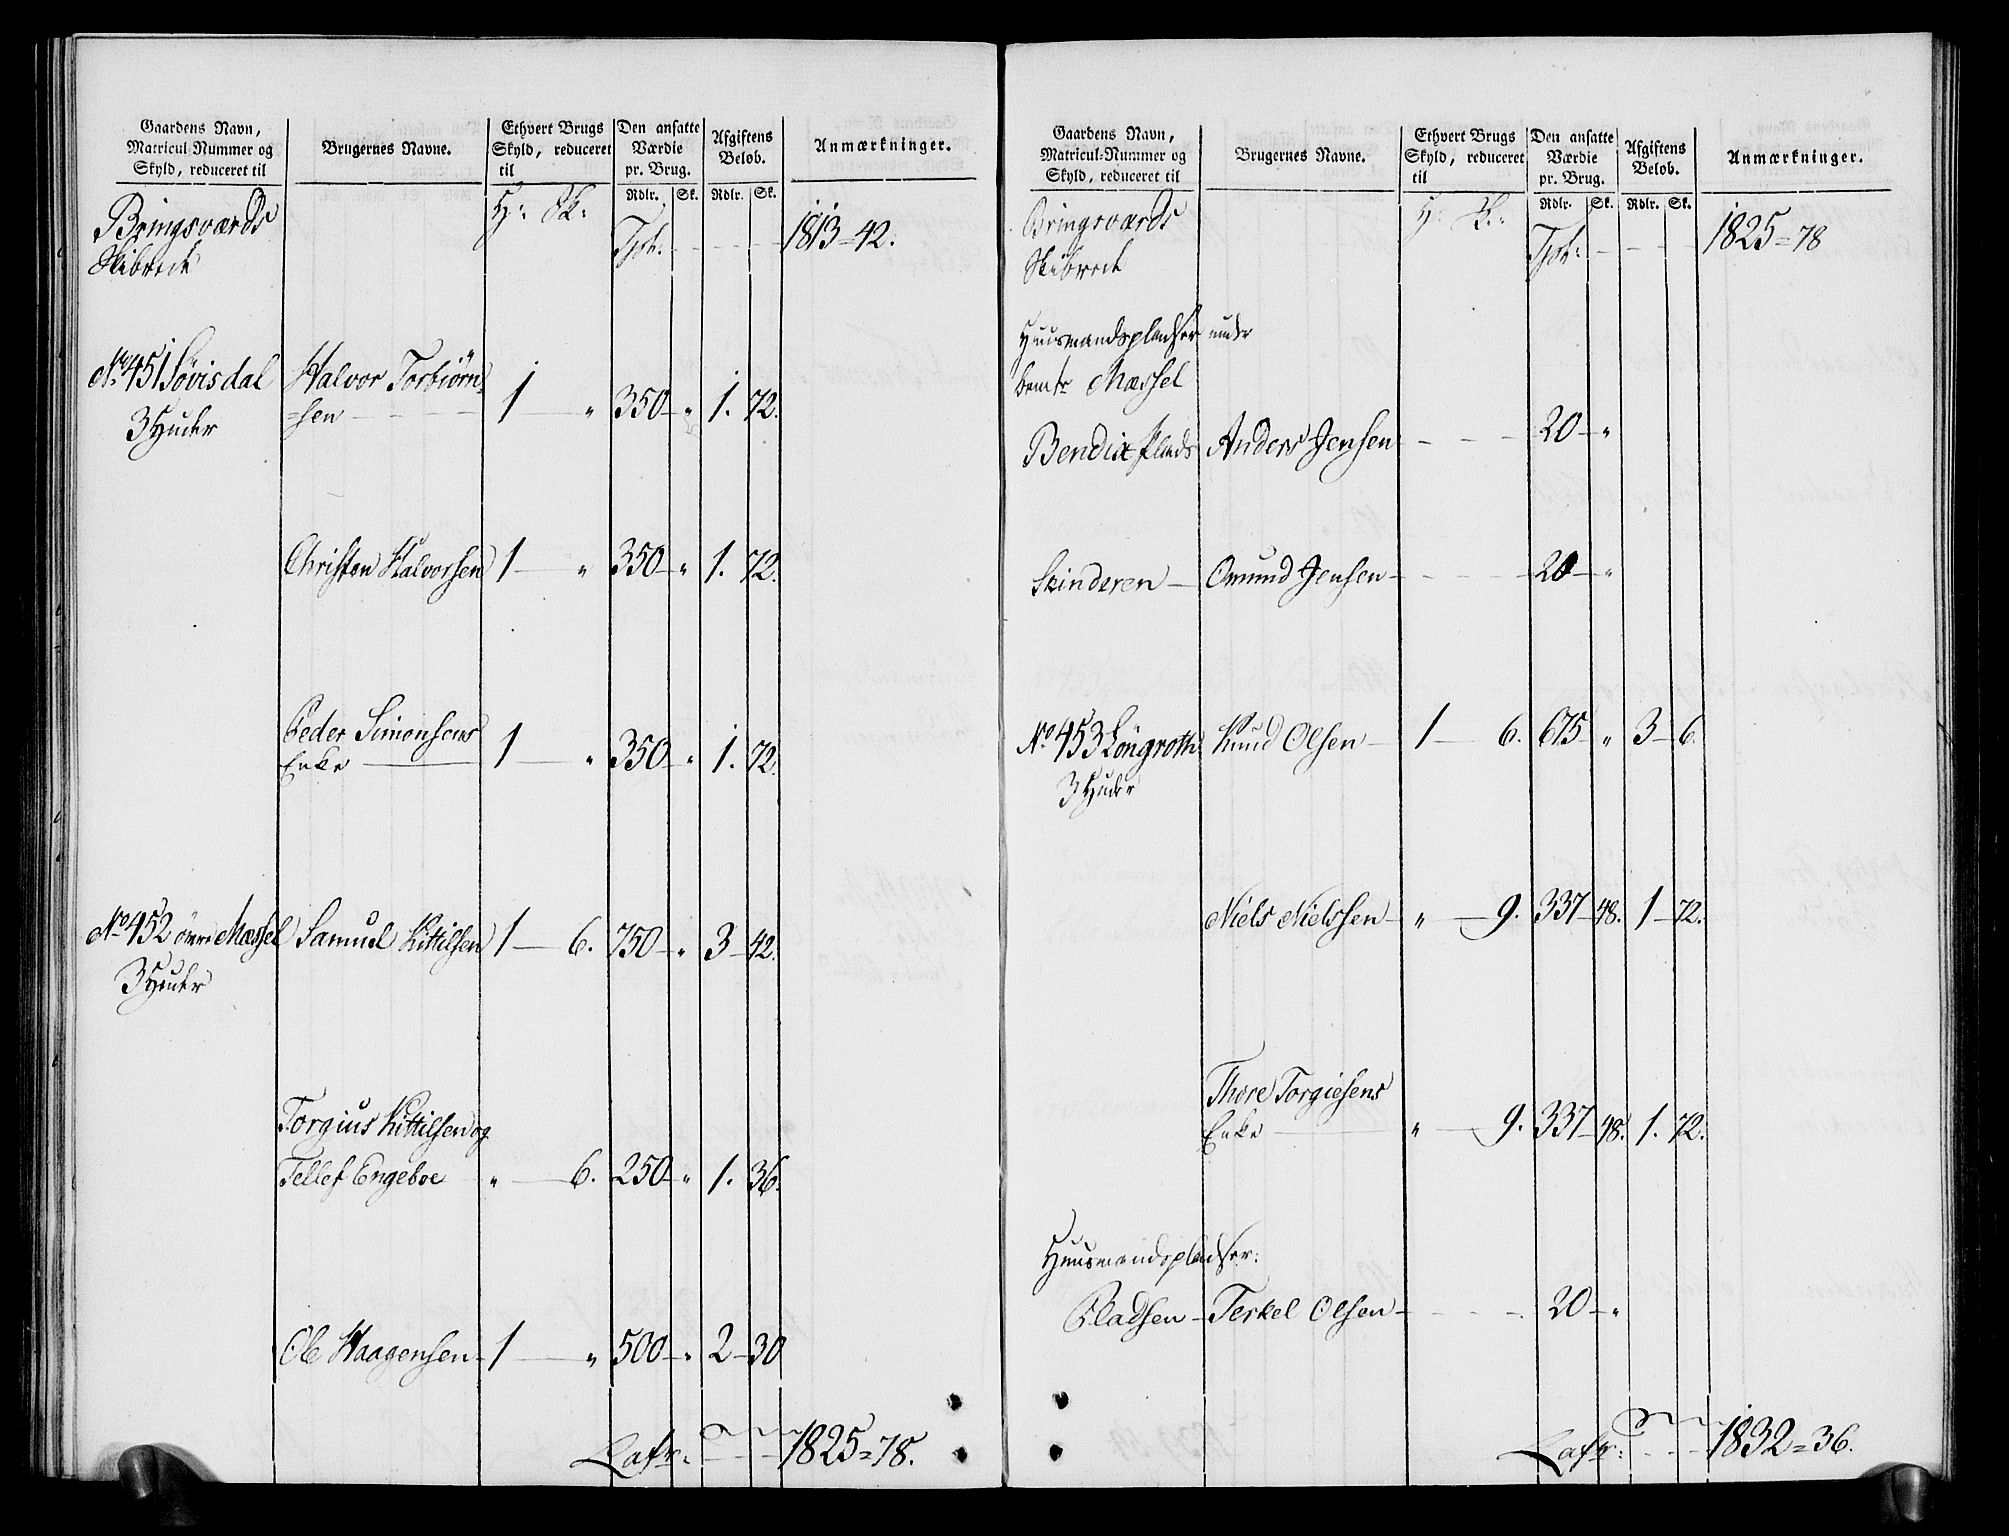 Gaardens Navn,
Matricul Nummer og
Skyld, reduceret til
Brugernes Navne.
Ethvert Brugs
Skyld, reduceret
til
Den ansatte
Værdie
pr. Brug.
Afgiftens
Beløb.
Anmærkninger.
Rdlr. Sk. Rdlr. Sk.
Bringsværds H: Sk:
Skibrede Tpt: 1813=42.
No 451 Søvisdal Halvor Torbiørn=
=sen 1 — " 350 — " 1. 72.
3 Huder
Christen Halvorsen 1 — " 350 — " 1. 72.
Peder Simonsens
Enke 1 — " 350 — " 1. 72.
No 452 øvre Mæssel Samuel Kittilsen 1 — 6. 750 — " 3 — 42.
3 Huder
Torgius Kittilsen og
Tellef Engeboe " — 6. 250 — " 1. 36.
Ole Haagensen 1 — " 500 — " 2 — 30
Lafr: 1825=78.
Gaardens Navn,
Matricul-Nummer og
Skyld, reduceret til
Brugernes Navne.
Ethvert Brugs
Skyld, reduceret
til
Den ansatte
Værdie
pr. Brug.
Afgiftens
Beløb.
Anmærkninger.
Rdlr. Sk. Rdlr. Sk.
Bringsværds H: Sk:
Skibrede Tpt: 1825=78
Huusmandspladser under
bemte Mæssel
Bendix Plads Anders Jensen 20 — "
Skinderen — Omund Jensen 20 — "
No 453 Løngroth Knud Olsen 1 — 6. 675 " 3 — 6.
3 Huder
Niels Nielssen " — 9. 337 — 48. 1 — 72.
Thore Torgiesens
Enke " — 9. 337 — 48. 1. 72.
Huusmandspladser:
Pladsen — Terkel Olsen 20 — "
Lafr: 1832=36.